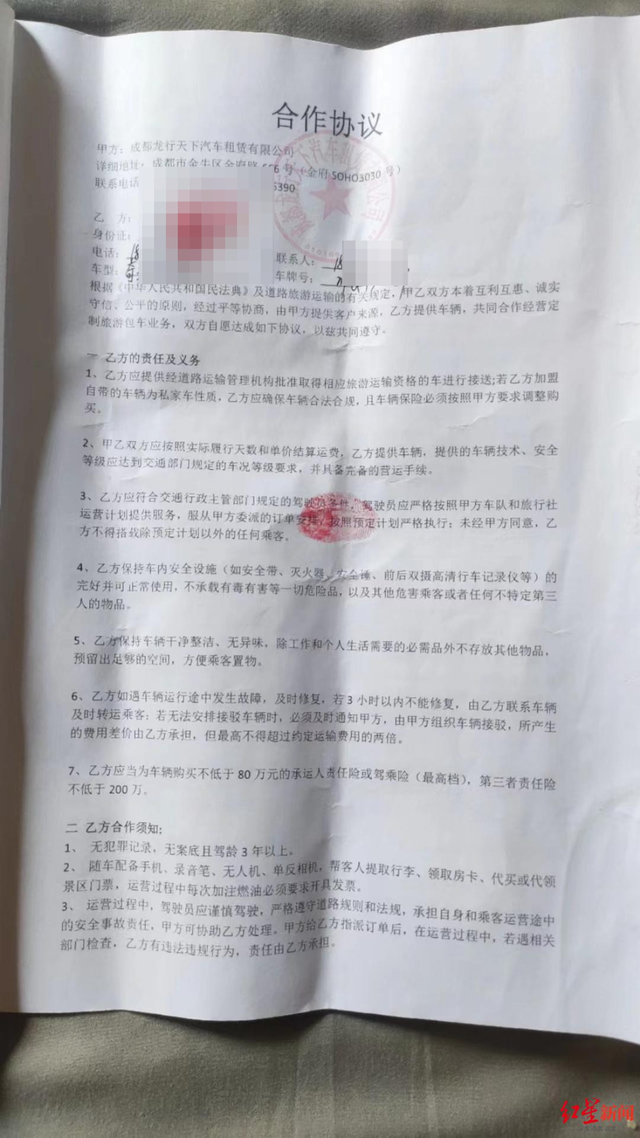 合作协议
甲方：成都龙行天下汽车租赁有限公司
详细地址：成都市金牛区金府路 6号（金府SOHO3030号）
联系电话 5390
乙 方：
身份证：
电话：18 联系人：18
车型： 车牌号：
根据《中华人民共和国民法典》及道路旅游运输的有关规定，甲乙双方本着互利互惠、诚实
守信、公平的原则，经过平等协商，由甲方提供客户来源，乙方提供车辆，共同合作经营定
制旅游包车业务，双方自愿达成如下协议，以兹共同遵守。
一 乙方的责任及义务
1、乙方应提供经道路运输管理机构批准取得相应旅游运输资格的车进行接送;若乙方加盟
自带的车辆为私家车性质，乙方应确保车辆合法合规，且车辆保险必须按照甲方要求调整购
买。
2、甲乙双方应按照实际履行天数和单价结算运费，乙方提供车辆，提供的车辆技术、安全
等级应达到交通部门规定的车况等级要求，并具备完备的营运手续。
3、乙方应符合交通行政主管部门规定的驾驶员条件，驾驶员应严格按照甲方车队和旅行社
运营计划提供服务，服从甲方委派的订单安排，按照预定计划严格执行；未经甲方同意，乙
方不得搭载除预定计划以外的任何乘客。
4、乙方保持车内安全设施（如安全带、灭火器、安全锤、前后双摄高清行车记录仪等）的
完好并可正常使用，不承载有毒有害等一切危险品，以及其他危害乘客或者任何不特定第三
人的物品。
5、乙方保持车辆干净整洁、无异味，除工作和个人生活需要的必需品外不存放其他物品，
预留出足够的空间，方便乘客置物。
6、乙方如遇车辆运行途中发生故障，及时修复，若3小时以内不能修复，由乙方联系车辆
及时转运乘客；若无法安排接驳车辆时，必须及时通知甲方，由甲方组织车辆接驳，所产生
的费用差价由乙方承担，但最高不得超过约定运输费用的两倍。
7、乙方应当为车辆购买不低于80万元的承运人责任险或驾乘险（最高档），第三者责任险
不低于200万。
二 乙方合作须知:
1、 无犯罪记录，无案底且驾龄3年以上。
2、 随车配备手机、录音笔、无人机、单反相机，帮客人提取行李、领取房卡、代买或代领
景区门票，运营过程中每次加注燃油必须要求开具发票。
3、 运营过程中，驾驶员应谨慎驾驶，严格遵守道路规则和法规，承担自身和乘客运营途中
的安全事故责任，甲方可协助乙方处理。甲方给乙方指派订单后，在运营过程中，若遇相关
部门检查，乙方有违法违规行为，责任由乙方承担。
红星新闻